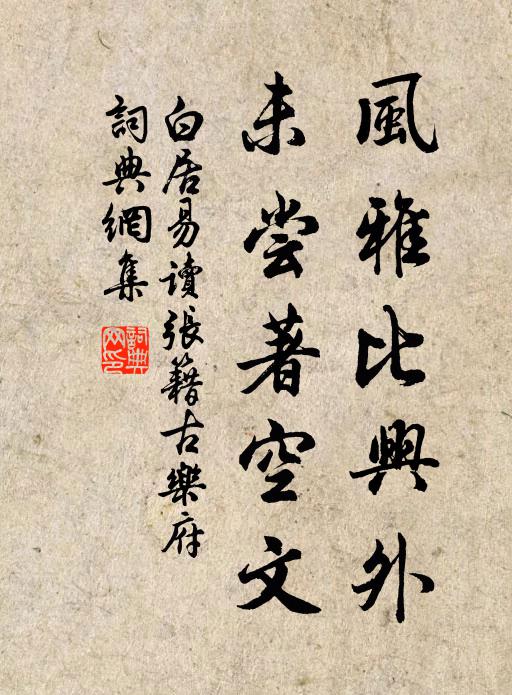 風雅比興外
未尝著空文
白居易读張籍古樂府
詞典網集
詞典
网印